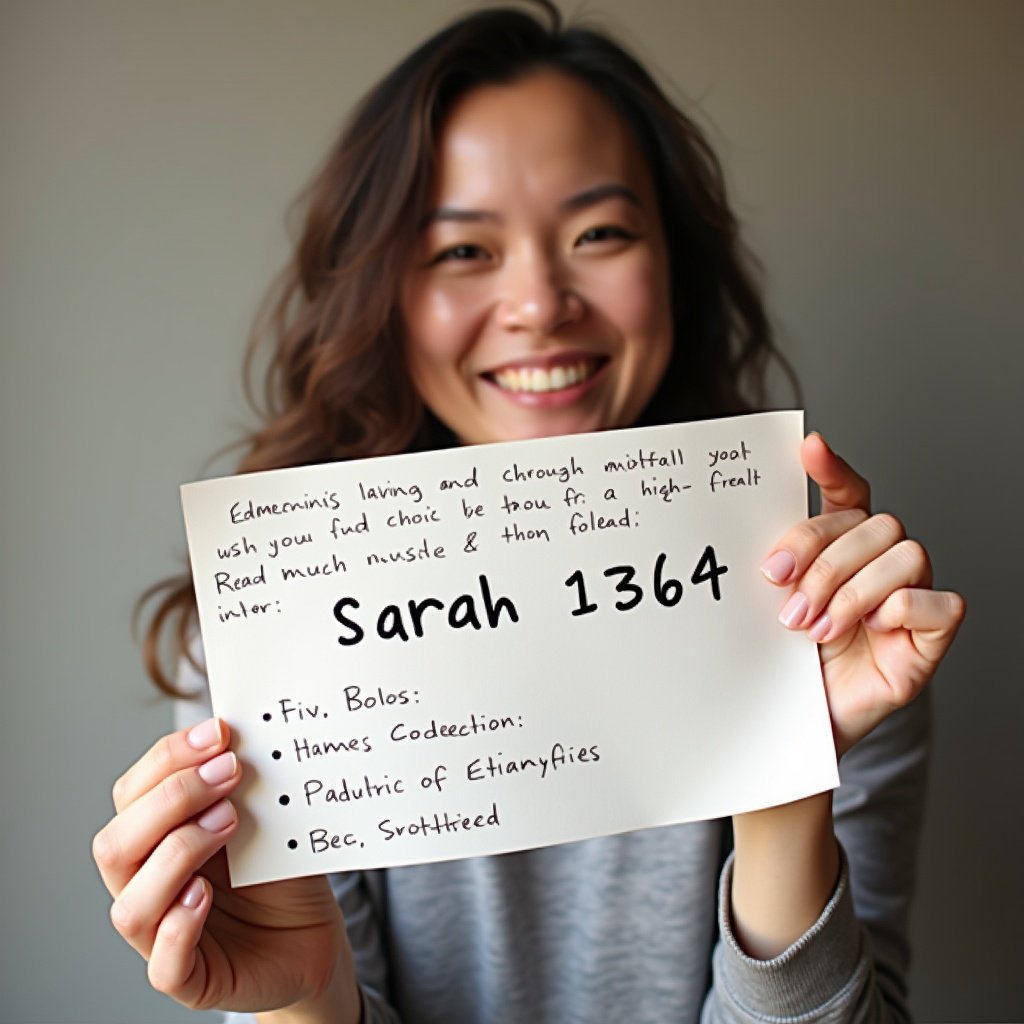 Edmecninis laving and chrough mistfall yoat
wsh you fud choic be txou fr: a high- frealt
Read much nusde & thon folead:
inter:
Sarah 1364
• Fiv. Bolos:
• Hames Codeection:
• Padutric of Etianyfies
• Bec. Srotthieed